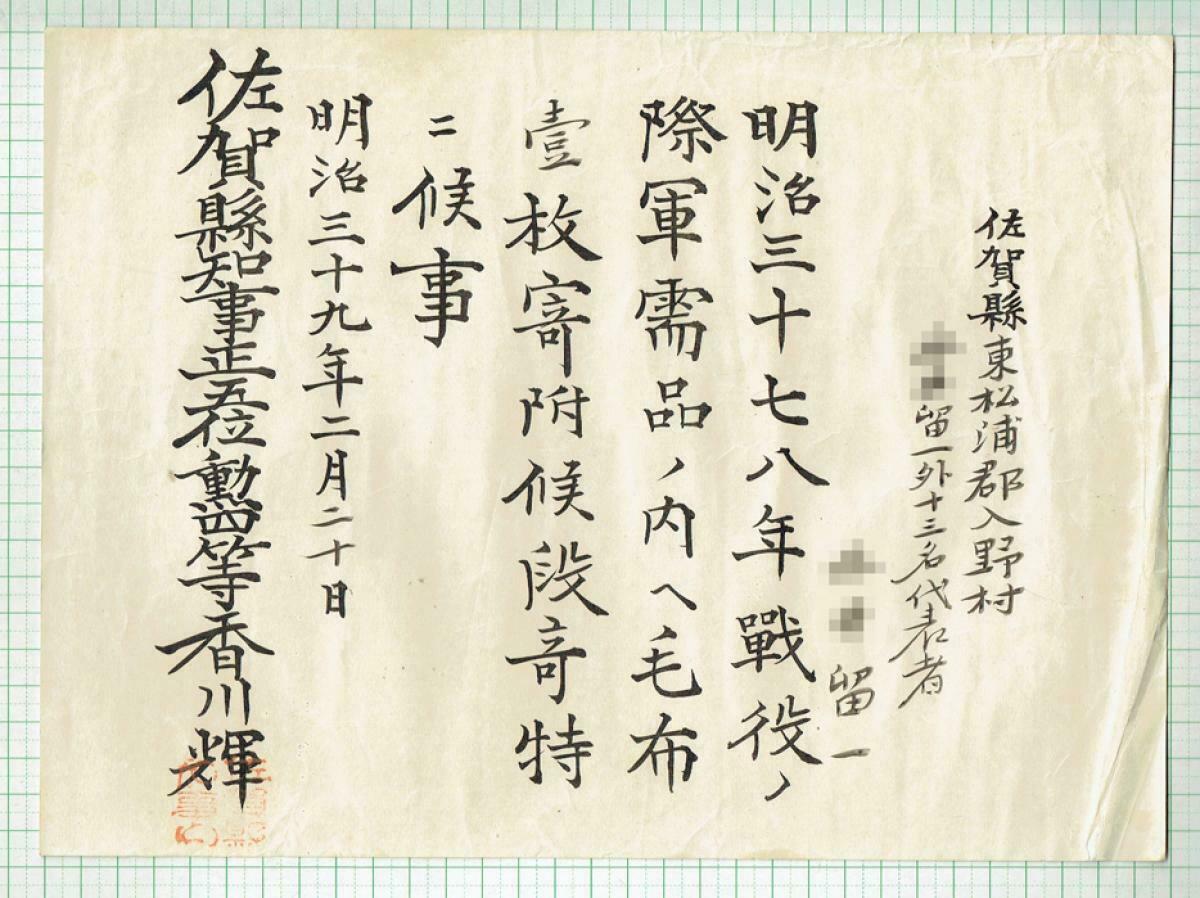 佐賀縣東松浦郡入野村
留一外十三名代表者
留一
明治三十七八年戰役ノ
際軍需品ノ内ヘ毛布
壹枚寄附候段奇特
ニ候事
明治三十九年二月二十日
佐賀縣知事正五位勲四等香川輝